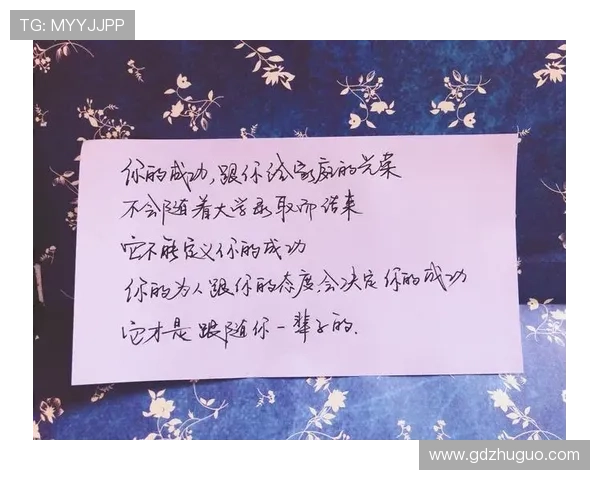 TG: MYYJJPP
你的成功,跟你给家庭的光荣
不会随着大学录取而结束
它不能定义你的成功
你的为人跟你的态度,会决定你的成功
它才是跟随你一辈子的.
www.gdzhuguo.com